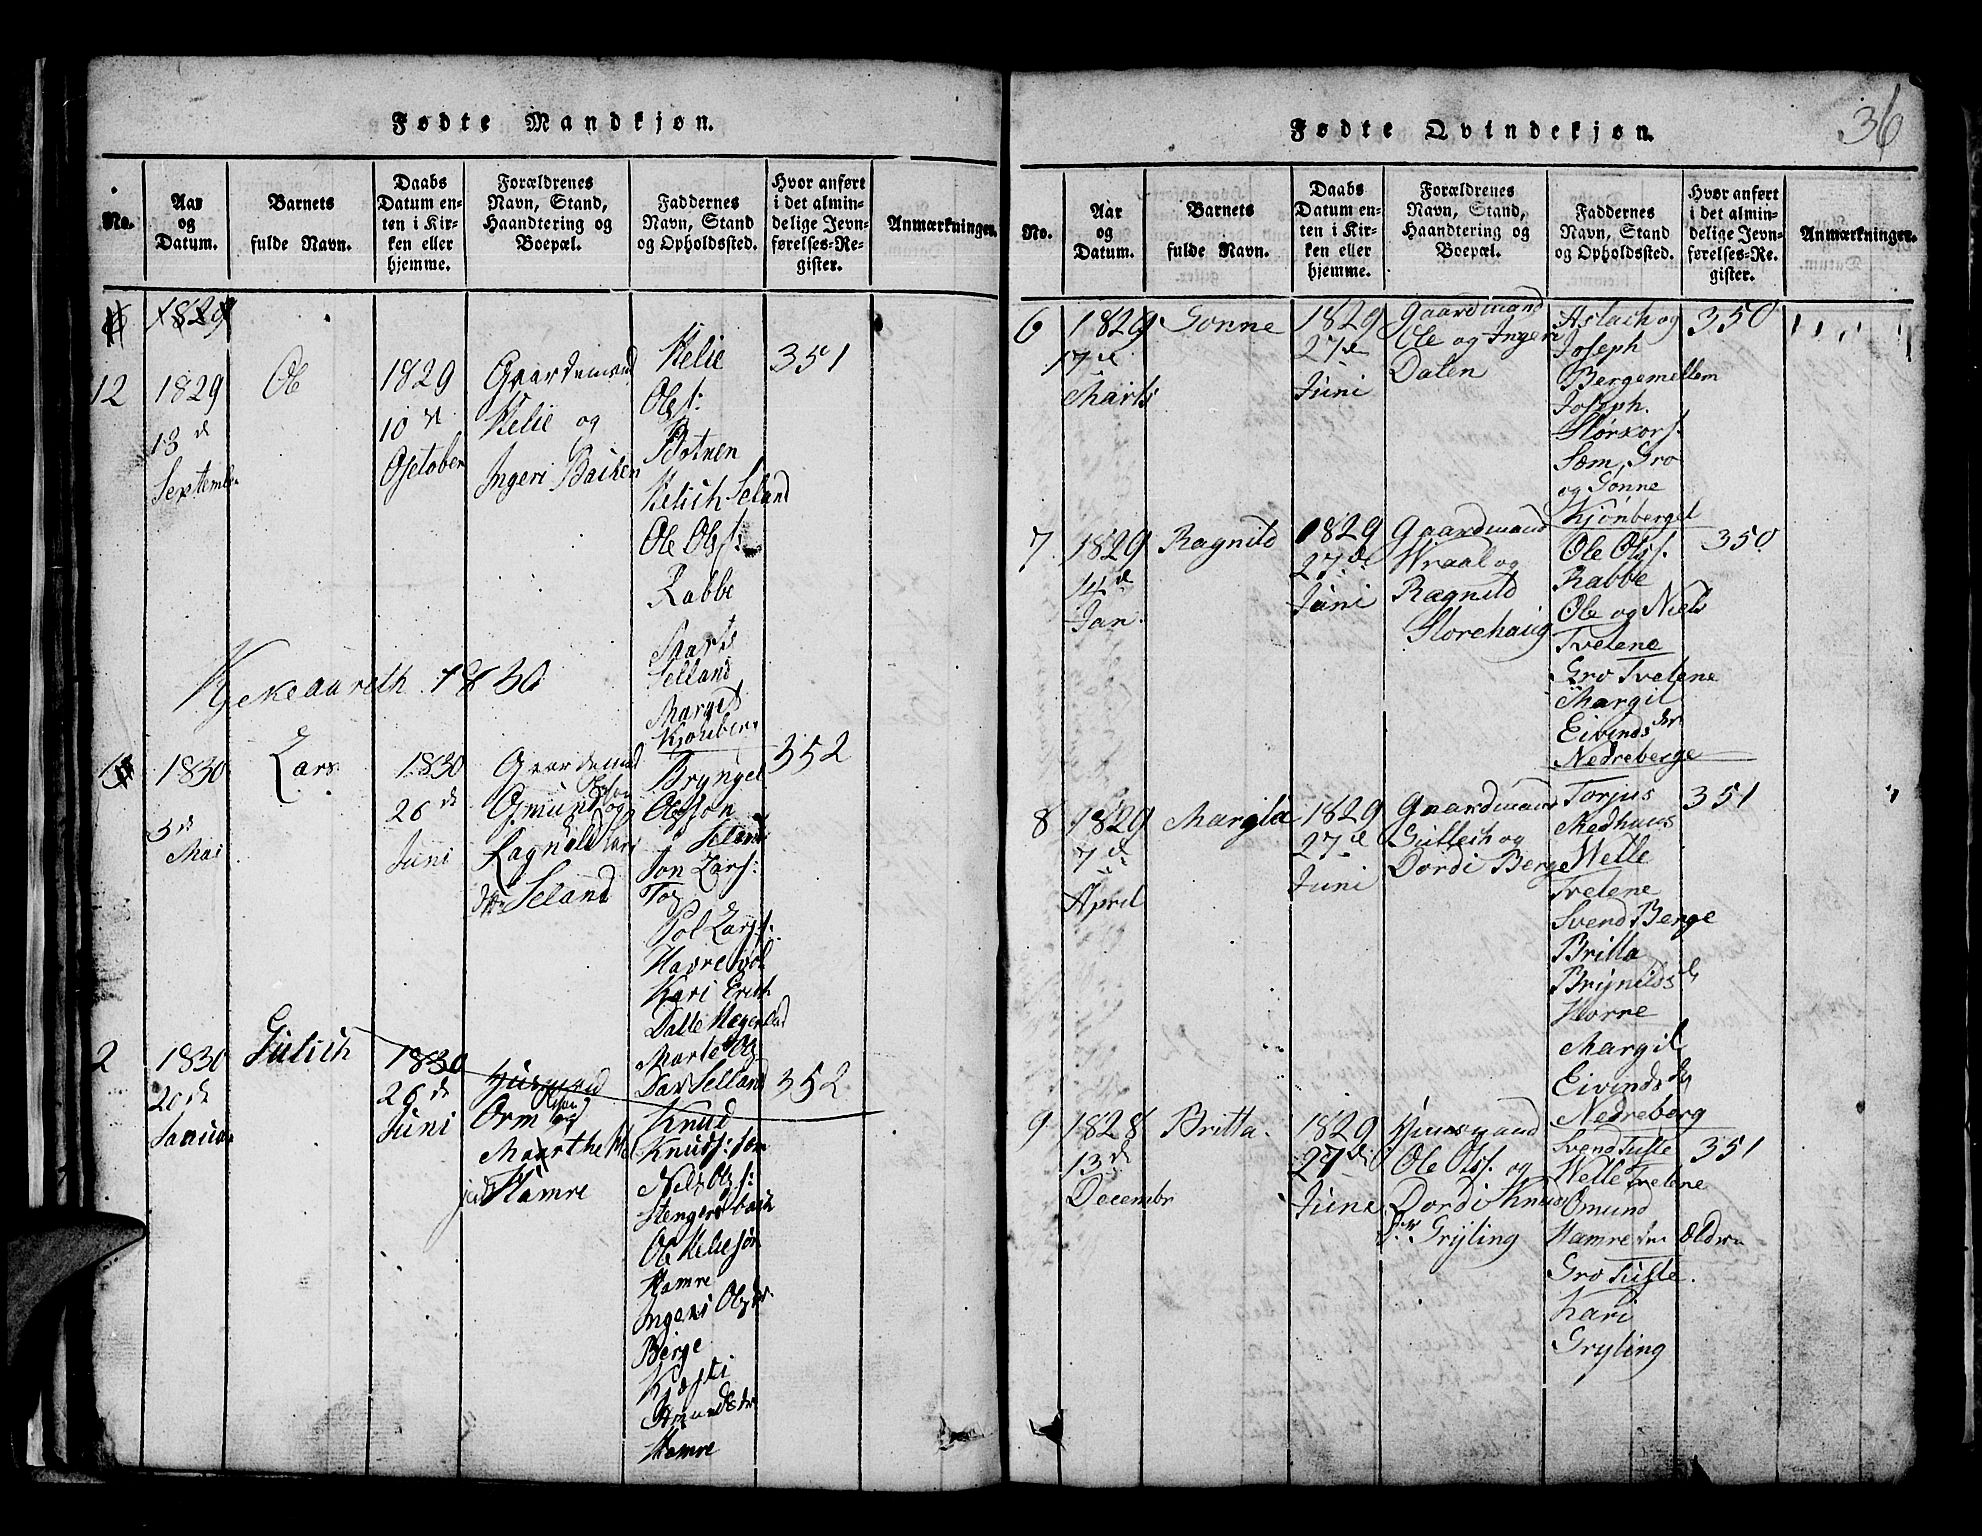 Fødte Mandkjøn.
No.
Aar
og
Datum.
Barnets
fulde Navn.
Daabs
Datum en-
ten i Kir-
ken eller
hjemme.
Forældrenes
Navn, Stand,
Haandtering og
Boepæl.
Faddernes
Navn, Stand
og Opholdssted.
Hvor anført
i det almin-
delige Jevn-
førelses-Re-
gister.
Anmærkninger.
1829
12
1829
13 d
Septembr
Ole
1829
10 d
October
Gaardemand
Kelie og
Ingeri Backen
Kelie
Ols:
Botnen
Kelich Seland
Ole Ols:
Rabbe
Maarts
Selland
Margit
Kjonberg
351
Kjekeaareth 1830
1
1830
3 d
Mai
Lars
1830
26 d
Juni
Gaardemad
Gmund Olson og
Lagnild Lars
dtr Seland
Bryngel
Olsson
Seland
Jon Lars:
Tog
Pol Lars:
Havrevol
Kari Erich
Datte Hegerland
Marte Ols
Dat Selland
352
2
1830
20 d
Januar
Gulich
1830
26 d
Juni
Huusmand
Orm Olsen og
Maarthe Niel
Hamre
Knud
Knuds: søn
Niels Ols:
Stengersback
Ole Keliesøn
Hamre
Ingeri Ols dr
Berge
Kjøsti
Amunds dr
Hamre
352
36
Fødte Qvindekjøn.
No.
Aar
og
Datum.
Barnets
fulde Navn.
Daabs
Datum en-
ten i Kir-
ken eller
hjemme.
Forældrenes
Navn, Stand,
Haandtering og
Boepæl.
Faddernes
Navn, Stand
og Opholdssted.
Hvor anført
i det almin-
delige Jevn-
førelses-Re-
gister.
Anmærkninger.
6
1829
17 d
Marts
Gonne
1829
27 d
Juni
Gaardmand
Ole og Ingeri
Dalen
Aslach og
Joseph
Bergemellem
Joseph
Størxors.
Søm, Gro
og Gonne
Kjønberget
350
7
1829
14 d
Jan.
Ragnild
1829
27 d
Juni
Gaardmand
Wraal og
Ragnild
Storehaug
Ole Ols.
Rabbe
Ole og Niels
Tvelene
Gro Tvelene
Margit
Eivinds dr
Nedreberge
350
8
1829
7 d
April
Margita
1829
27 d
Juni
Gaardmand
Gullech og
Dordi Berge
Torjus
Medhuus
Welle
Tvelene
Svend Berge
Britta
Brynilds d
Horre
Margit
Eivinds dr
Nedreberg
351
9
1828
13 d
Decembr
Britta.
1829
27 d
June
Huusmand
Ole Ols. og
Dordi Knuds
dr Gryting
Svend Tufte
Welle Tvelene
Omund
Hamre den Eldre
Gro Tufte.
Kari
Gryting
351